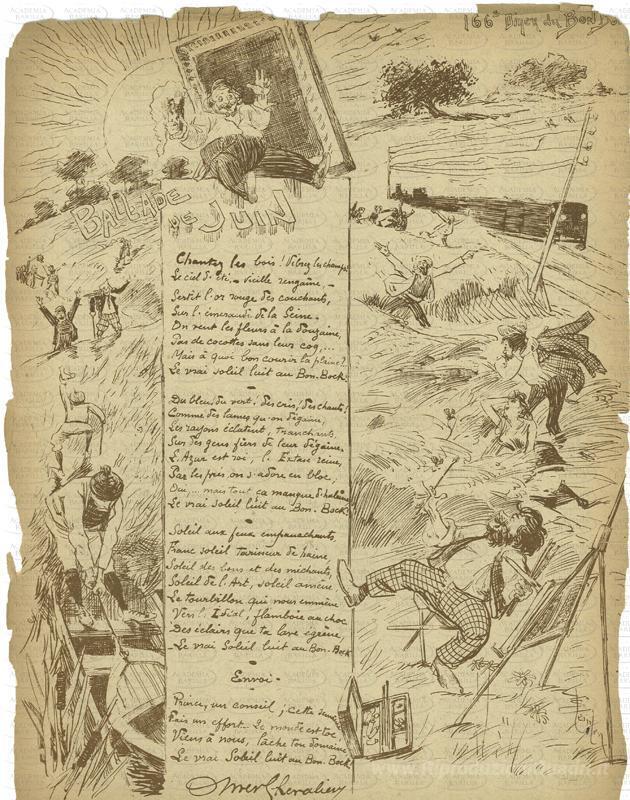 166e Diner du Bon Bo
BALLADE
DE JUIN
Chantez les bois! Vibrez les champs
Le ciel d'été, - vieille rengaine, -
Sertit l'or rouge des couchants,
Sur l'émeraude de la Seine.
On vent les fleurs à la douzaine,
Pas de cocottes sans leur coq...
Mais à quoi bon courir la plaine?
Le vrai soleil luit au Bon-Bock.
Du bleu, du vert! des cris! des chants!
Comme des lames qu'on dégaine,
Les rayons éclatent, tranchants,
Sur des gens fiers de leur dégaine.
L'Azur est roi, l'Extase reine,
Par les prés on s'adore en bloc,
Oui,... mais tout ça manque d'haleine
Le vrai soleil luit au Bon-Bock.
Soleil aux feux empanachants,
Franc soleil tarisseur de haine
Soleil des bons et des méchants,
Soleil de l'Art, soleil amène
Le tourbillon qui nous emmène
Vers l'Idéal, flamboie au choc
Des éclairs que ta lave égrène,
Le vrai Soleil luit au Bon-Bock
Envoi-
Prince, un conseil; cette
Fais un effort. Le monde est toc
Viens à nous, lâche ton domaine
Le vrai Soleil luit au Bon-Bock.
Chevalier
ACADEMIA BARILLA